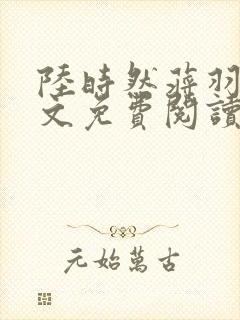 陸時然蔣羽
文免費閱讀
元始萬古